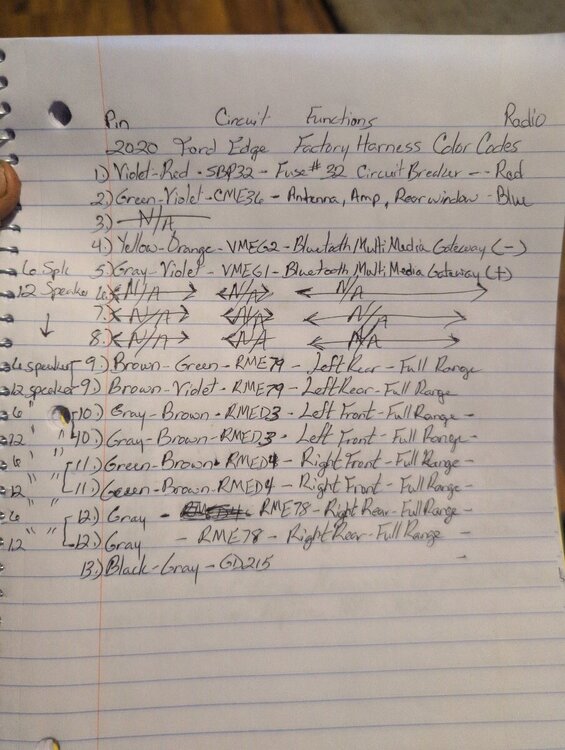 Pin Circuit Functions Radio
2020 Ford Edge Factory Harness Color Codes
1.) Violet-Red - SBP32 - Fuse # 32 Circuit Breaker -- Red
2.) Green-Violet - CME36 - Antenna, Amp, Rear window - Blue
3.) N/A
4.) Yellow-Orange - VMEG2 - Bluetooth/Multi Media Gateway (-)
6 Spk 5.) Gray-Violet - VMEG1 - Bluetooth, Multi Media Gateway (+)
12 Speaker 6.) N/A N/A N/A
7.) N/A N/A N/A
8.) N/A N/A N/A
6 speaker 9.) Brown-Green - RME79 - Left Rear - Full Range
12 speaker 9.) Brown-Violet - RME79 - Left Rear - Full Range
6 " 10.) Gray-Brown - RMED3 - Left Front - Full Range -
12 " 10.) Gray-Brown - RMED3 - Left Front - Full Range -
6 " " 11.) Green-Brown - RMED4 - Right Front - Full Range -
12 " " 11.) Green-Brown - RMED4 - Right Front - Full Range -
6 " " 12.) Gray - RME78 - Right Rear - Full Range -
12 " " 12.) Gray - RME78 - Right Rear - Full Range -
13.) Black-Gray - GD215 -